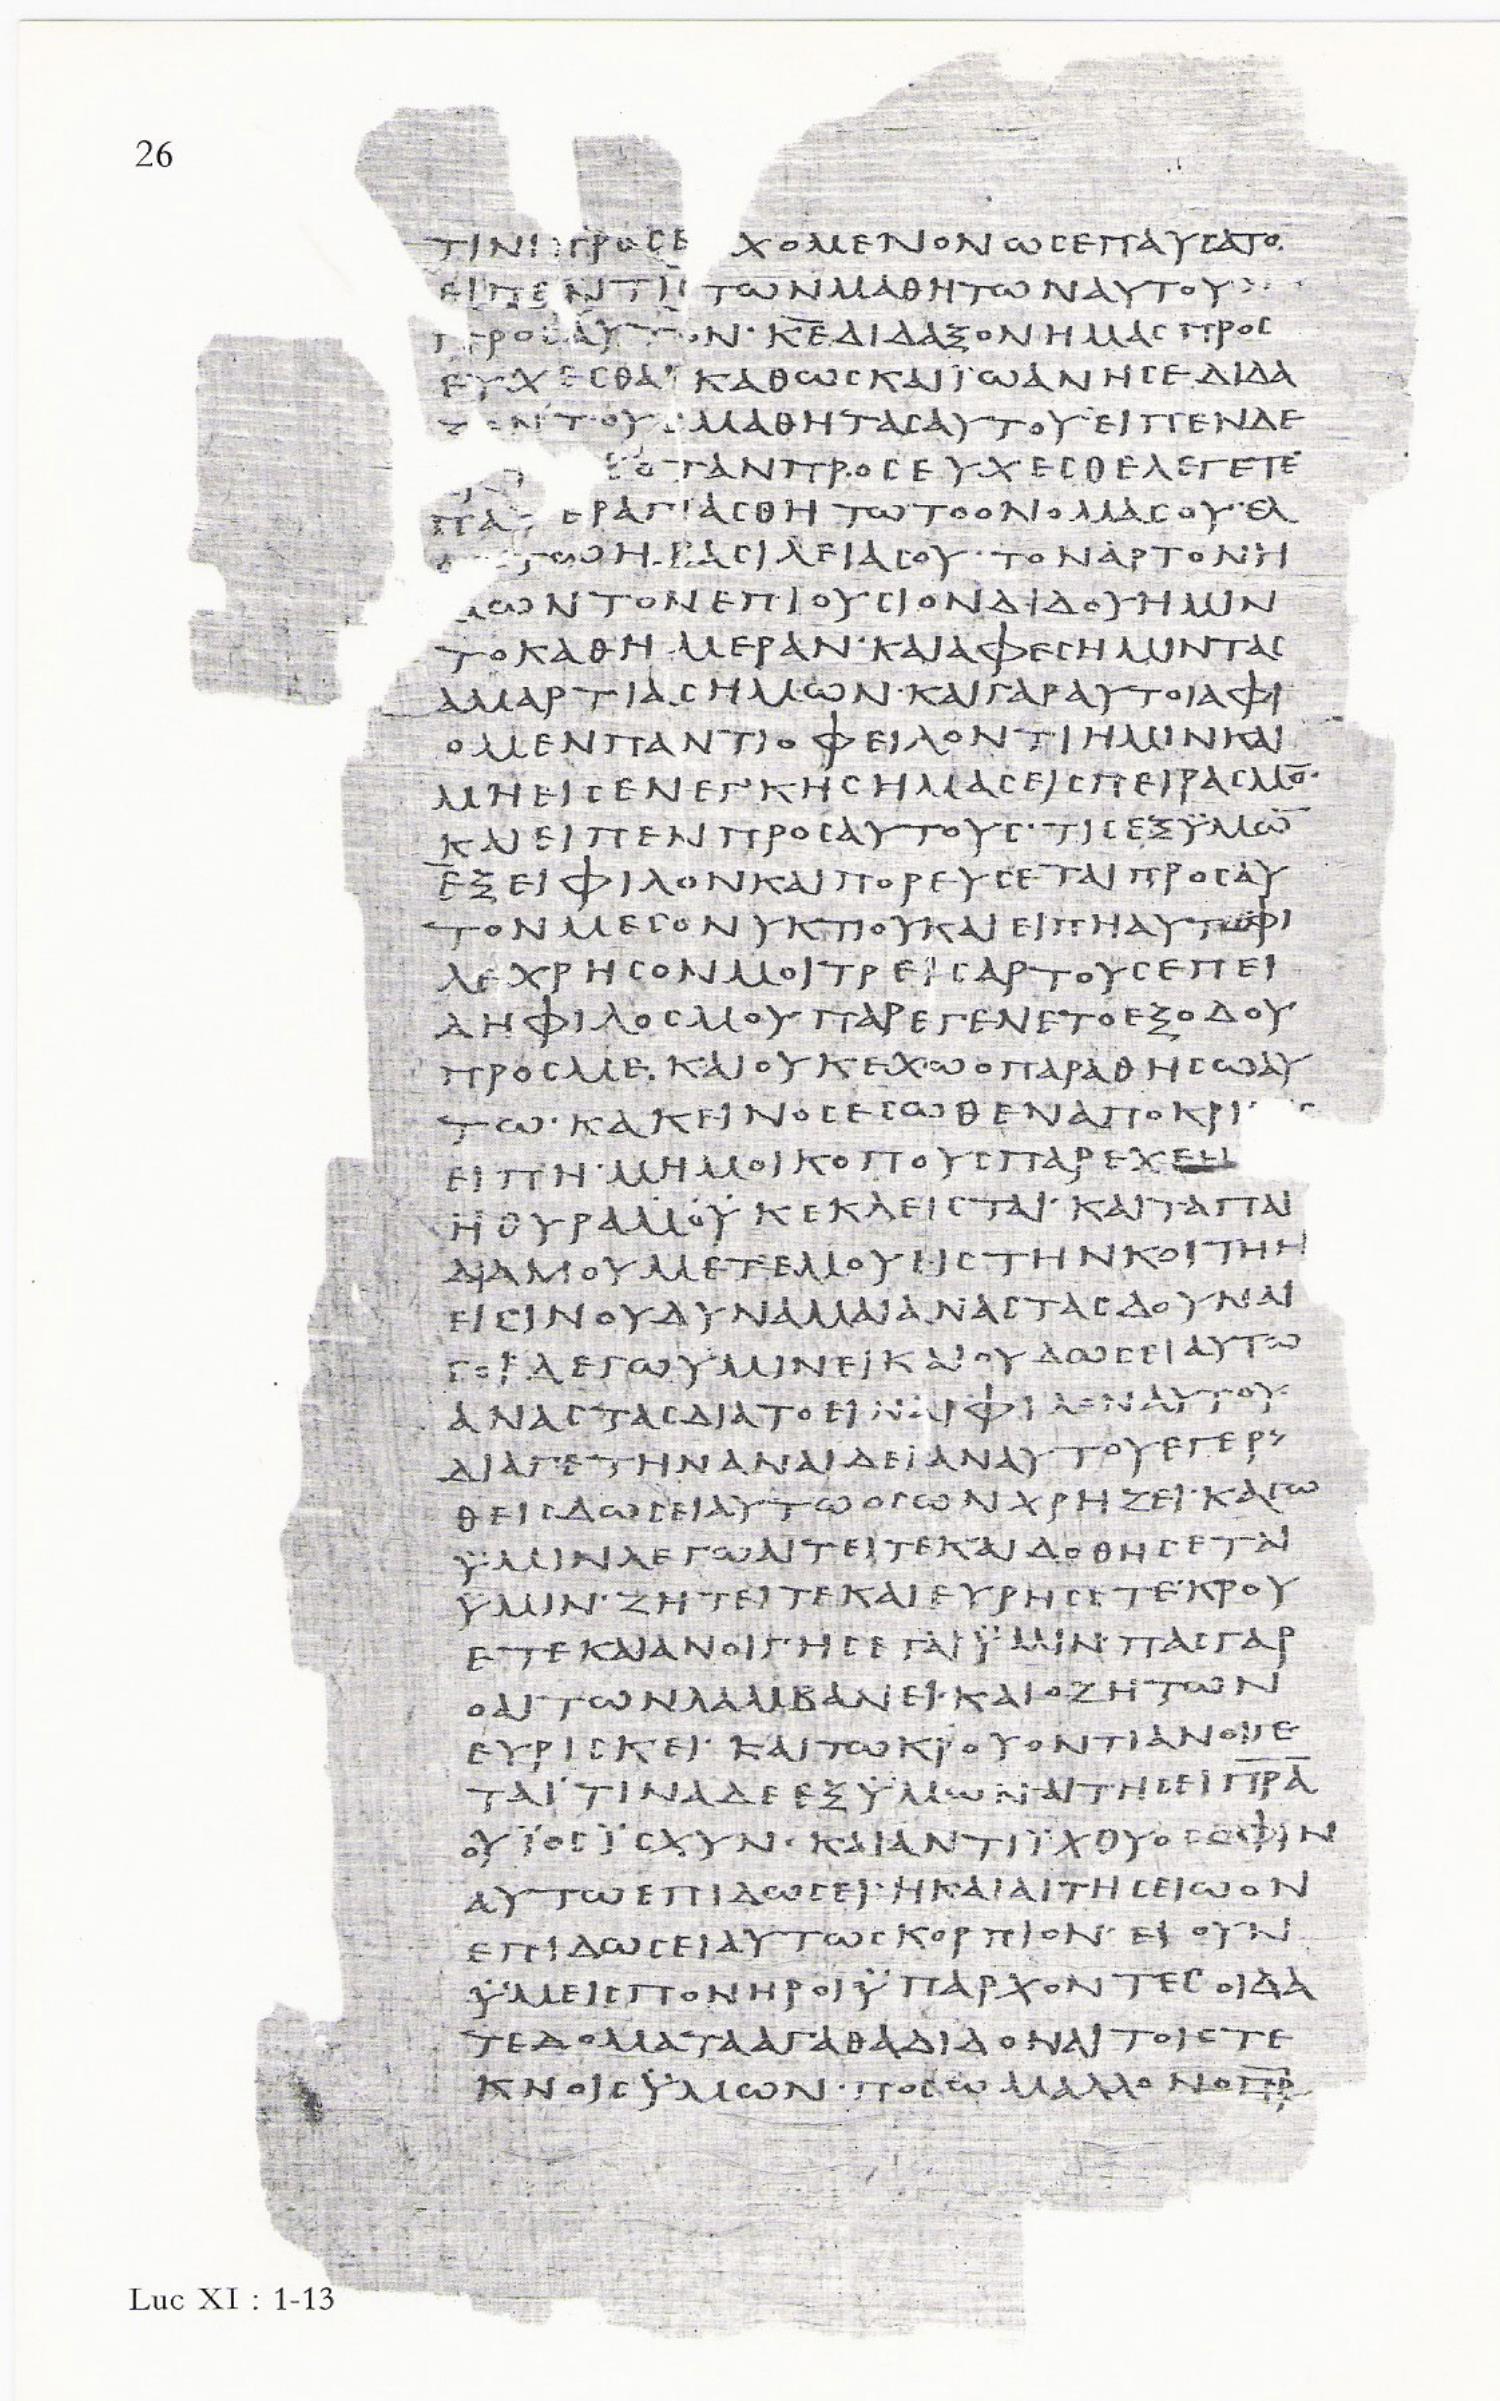 26
ΤΙΝΙ ΠΡΟΣΕ ΧΟΜΕΝΟΝ ΩΣ ΕΠΑΥΣΑΤΟ
ΕΙΠΕΝ ΤΙΣ ΤΩΝ ΜΑΘΗΤΩΝ ΑΥΤΟΥ
ΠΡΟΣ ΑΥΤΟΝ· Κ̅Ε̅ ΔΙΔΑΞΟΝ ΗΜΑΣ ΠΡΟΣ
ΕΥΧΕΣΘΑΙ ΚΑΘΩΣ ΚΑΙ ΪΩΑΝΗΣ ΕΔΙΔΑ
ΤΟΥΣ ΜΑΘΗΤΑΣ ΑΥΤΟΥ· ΕΙΠΕΝ ΔΕ
ΟΤΑΝ ΠΡΟΣΕΥΧΕΣΘΕ ΛΕΓΕΤΕ
ΠΑ ΕΡ ΑΓΙΑΣΘΗΤΩ ΤΟ ΟΝΟΜΑ ΣΟΥ· ΕΛ
ΤΩ Η ΒΑΣΙΛΕΙΑ ΣΟΥ· ΤΟΝ ΑΡΤΟΝ Η
ΜΩΝ ΤΟΝ ΕΠΙΟΥΣΙΟΝ ΔΙΔΟΥ ΗΜΙΝ
ΤΟ ΚΑΘ ΗΜΕΡΑΝ· ΚΑΙ ΑΦΕΣ ΗΜΙΝ ΤΑΣ
ΑΜΑΡΤΙΑΣ ΗΜΩΝ· ΚΑΙ ΓΑΡ ΑΥΤΟΙ ΑΦΙ
ΟΜΕΝ ΠΑΝΤΙ ΟΦΕΙΛΟΝΤΙ ΗΜΙΝ ΚΑΙ
ΜΗ ΕΙΣΕΝΕΓΚΗΣ ΗΜΑΣ ΕΙΣ ΠΕΙΡΑΣΜΟ̅·
ΚΑΙ ΕΙΠΕΝ ΠΡΟΣ ΑΥΤΟΥΣ· ΤΙΣ ΕΞ ΫΜΩ̅
ΕΞΕΙ ΦΙΛΟΝ ΚΑΙ ΠΟΡΕΥΣΕΤΑΙ ΠΡΟΣ ΑΥ
ΤΟΝ ΜΕΣΟΝΥΚΤΙΟΥ ΚΑΙ ΕΙΠΗ ΑΥΤΩ ΦΙ
ΛΕ ΧΡΗΣΟΝ ΜΟΙ ΤΡΕΙΣ ΑΡΤΟΥΣ ΕΠΕΙ
ΔΗ ΦΙΛΟΣ ΜΟΥ ΠΑΡΕΓΕΝΕΤΟ ΕΞ ΟΔΟΥ
ΠΡΟΣ ΜΕ· ΚΑΙ ΟΥΚ ΕΧΩ Ο ΠΑΡΑΘΗΣΩ ΑΥ
ΤΩ· ΚΑΚΕΙΝΟΣ ΕΣΩΘΕΝ ΑΠΟΚΡΙ Σ
ΕΙΠΗ· ΜΗ ΜΟΙ ΚΟΠΟΥΣ ΠΑΡΕΧΕ
Η ΘΥΡΑ ΜΟΥ ΚΕΚΛΕΙΣΤΑΙ· ΚΑΙ ΤΑ ΠΑΙ
ΔΙΑ ΜΟΥ ΜΕΤ ΕΜΟΥ ΙΣ ΤΗΝ ΚΟΙΤΗΝ
ΕΙΣΙΝ ΟΥ ΔΥΝΑΜΑΙ ΑΝΑΣΤΑΣ ΔΟΥΝΑΙ
ΣΟΙ· ΛΕΓΩ ΥΜΙΝ ΕΙ ΚΑΙ ΟΥ ΔΩΣΕΙ ΑΥΤΩ
ΑΝΑΣΤΑΣ ΔΙΑ ΤΟ ΕΙΝΑΙ ΦΙΛΟΝ ΑΥΤΟΥ
ΔΙΑ ΓΕ ΤΗΝ ΑΝΑΙΔΕΙΑΝ ΑΥΤΟΥ ΕΓΕΡ
ΘΕΙΣ ΔΩΣΕΙ ΑΥΤΩ ΟΣΩΝ ΧΡΗΖΕΙ· ΚΑΓΩ
ΫΜΙΝ ΛΕΓΩ ΑΙΤΕΙΤΕ ΚΑΙ ΔΟΘΗΣΕΤΑΙ
ΫΜΙΝ· ΖΗΤΕΙΤΕ ΚΑΙ ΕΥΡΗΣΕΤΕ· ΚΡΟΥ
ΕΤΕ ΚΑΙ ΑΝΟΙΓΗΣΕΤΑΙ ΫΜΙΝ· ΠΑΣ ΓΑΡ
Ο ΑΙΤΩΝ ΛΑΜΒΑΝΕΙ· ΚΑΙ Ο ΖΗΤΩΝ
ΕΥΡΙΣΚΕΙ· ΚΑΙ ΤΩ ΚΡΟΥΟΝΤΙ ΑΝΟΙΓΕ
ΤΑΙ· ΤΙΝΑ ΔΕ ΕΞ ΫΜΩΝ ΑΙΤΗΣΕΙ Π̅Ρ̅Α̅
Ο ΥΪΟΣ ΪΣΧΥΝ· ΚΑΙ ΑΝΤΙ ΪΧΘΥΟΣ ΟΦΙΝ
ΑΥΤΩ ΕΠΙΔΩΣΕΙ· Η ΚΑΙ ΑΙΤΗΣΕΙ ΩΟΝ
ΕΠΙΔΩΣΕΙ ΑΥΤΩ ΣΚΟΡΠΙΟΝ· ΕΙ ΟΥΝ
ΫΜΕΙΣ ΠΟΝΗΡΟΙ ΫΠΑΡΧΟΝΤΕΣ ΟΙΔΑ
ΤΕ ΔΟΜΑΤΑ ΑΓΑΘΑ ΔΙΔΟΝΑΙ ΤΟΙΣ ΤΕ
ΚΝΟΙΣ ΫΜΩΝ· ΠΟΣΩ ΜΑΛΛΟΝ Ο Π̅Η̅Ρ̅
Luc XI : 1-13